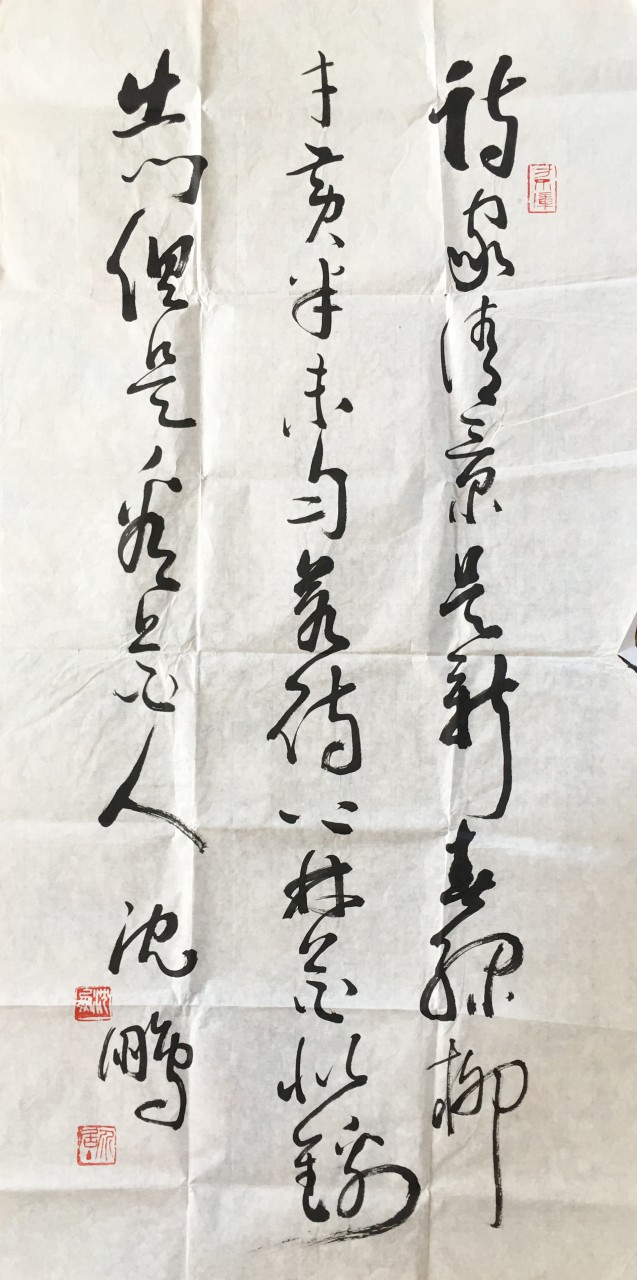 詩家清景是新春綠柳
才黃半未勻若待上林花似錦
出門俱是看花人
沈鵬
沈鵬
介居